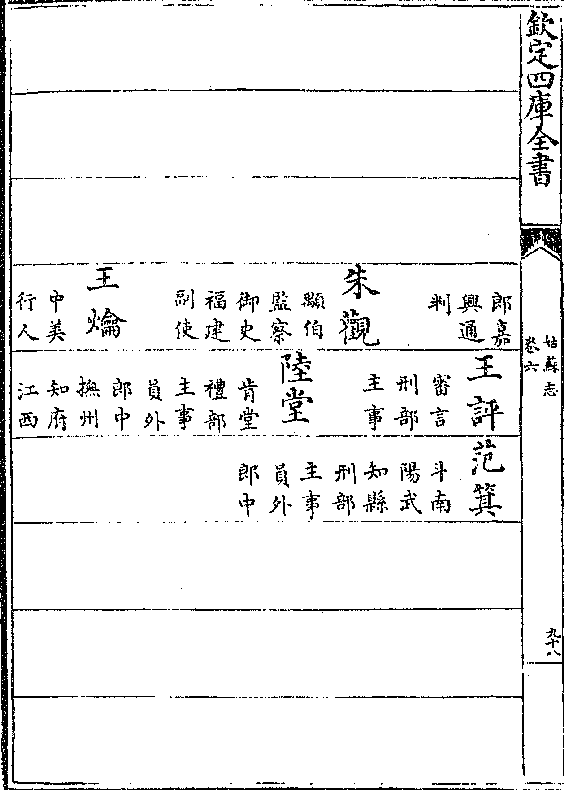 欽定四庫全書
姑蘇志
卷六
九十八
郎嘉
興通
判
朱觀
顯伯
監察
御史
福建
副使
王
中美
行人
王評
審言
刑部
主事
陸堂
肯堂
禮部
主事
員外
郎中
撫州
知府
江西
范箕
斗南
陽武
知縣
刑部
主事
員外
郎中